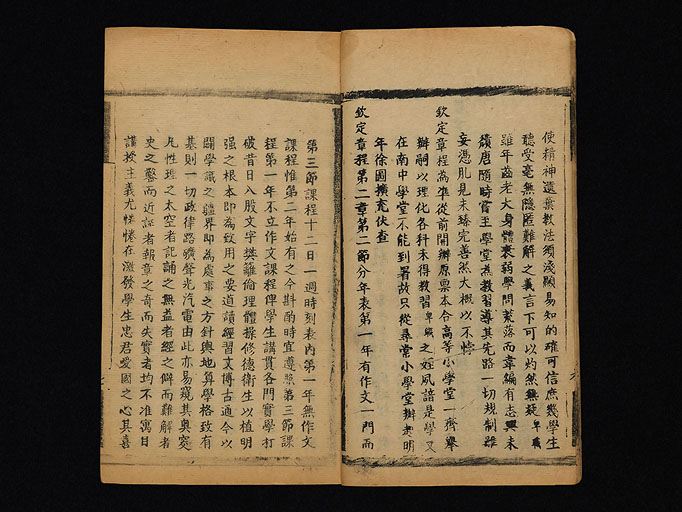 使精神還業教法須淺顯易知的確可信庶幾學生
聽受毫無隱匿難解之義言下可以灼然無疑卑職
雖年齒老大身體衰弱學問荒落而韋編有志興未
頹唐願時嘗王學堂為教習導其先路一切規制雖
妄憑肊見未臻完善然大概以不悖
欽定章程為準從前開辦原票本合高等小學堂一齊舉
辦嗣以理化各科未得教習卑職之姪夙諳是學又
在南中學堂不能到署故只從尋常小學堂辦起明
年徐圖擴充伏查
欽定章程第二章第二節分年表第一年有作文一門而
第三節課程十二日一週時刻表內第一年無作文
課程惟第二年始有之今斟酌時宜遵照第三節課
程第一年不立作文課程俾學生講貫各門實學打
破昔日八股文字樊籬倫理體操修德衛生以植明
强之根本即為致用之要道讀經習文博古通今以
闢學識之疆界即為處事之方針輿地算學格致有
基則一切政律路礦聲光汽電由此亦易窺其奧窔
凡性理之太空者記誦之無益者經之僻而難解者
史之鑿而近誣者報章之奇而失實者均不准寓目
講授主義尤惓惓在激發學生忠君愛國之心其喜